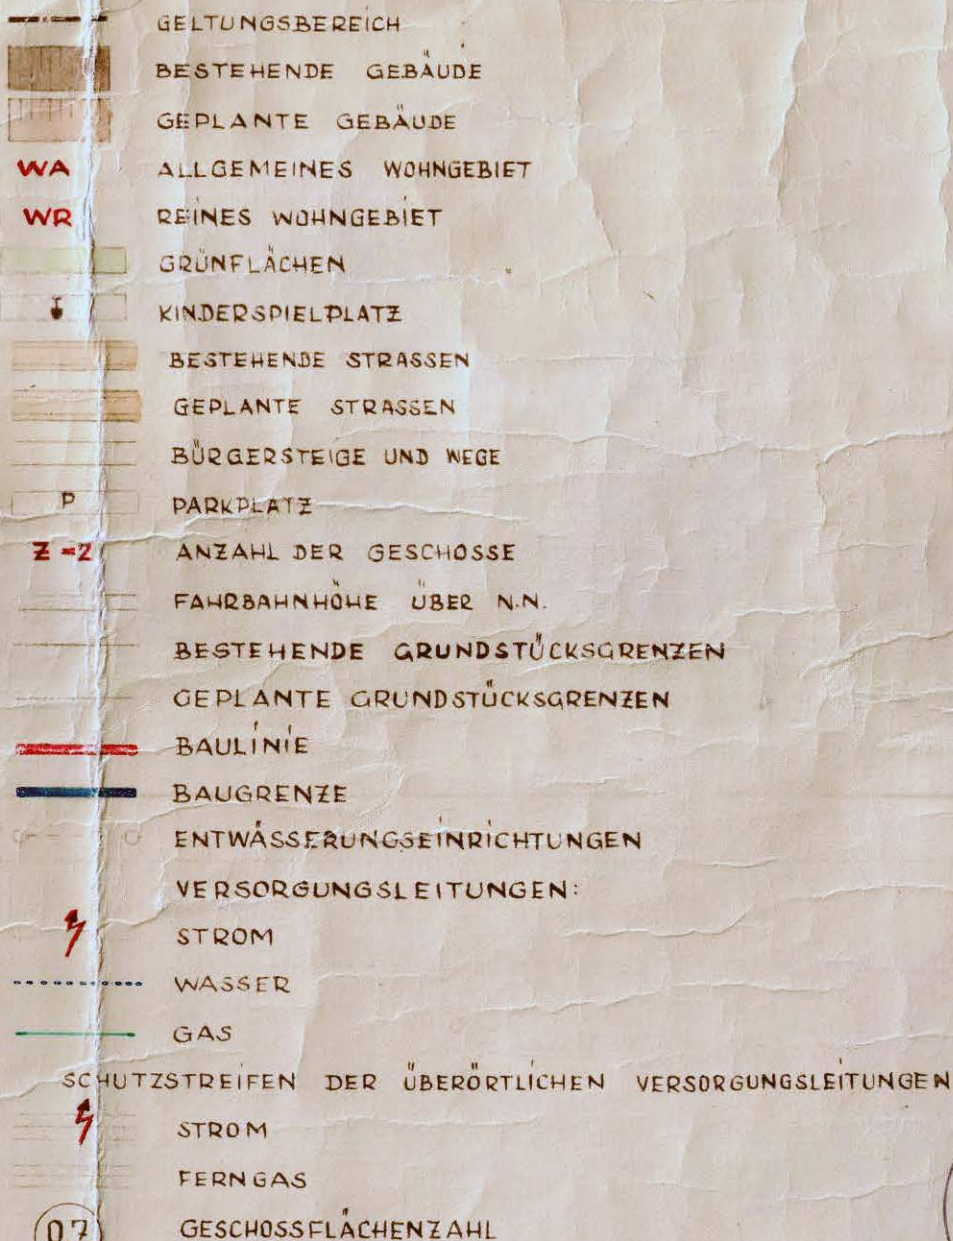 GELTUNGSBEREICH
BESTEHENDE GEBÄUDE
GEPLANTE GEBÄUDE
WA ALLGEMEINES WOHNGEBIET
WR REINES WOHNGEBIET
GRÜNFLÄCHEN
KINDERSPIELPLATZ
BESTEHENDE STRASSEN
GEPLANTE STRASSEN
BÜRGERSTEIGE UND WEGE
P PARKPLATZ
Z=2 ANZAHL DER GESCHOSSE
FAHRBAHNHÖHE ÜBER N.N.
BESTEHENDE GRUNDSTÜCKSGRENZEN
GEPLANTE GRUNDSTÜCKSGRENZEN
BAULINIE
BAUGRENZE
ENTWÄSSERUNGSEINRICHTUNGEN
VERSORGUNGSLEITUNGEN:
STROM
WASSER
GAS
SCHUTZSTREIFEN DER ÜBERÖRTLICHEN VERSORGUNGSLEITUNGEN
STROM
FERNGAS
07 GESCHOSSFLÄCHENZAHL